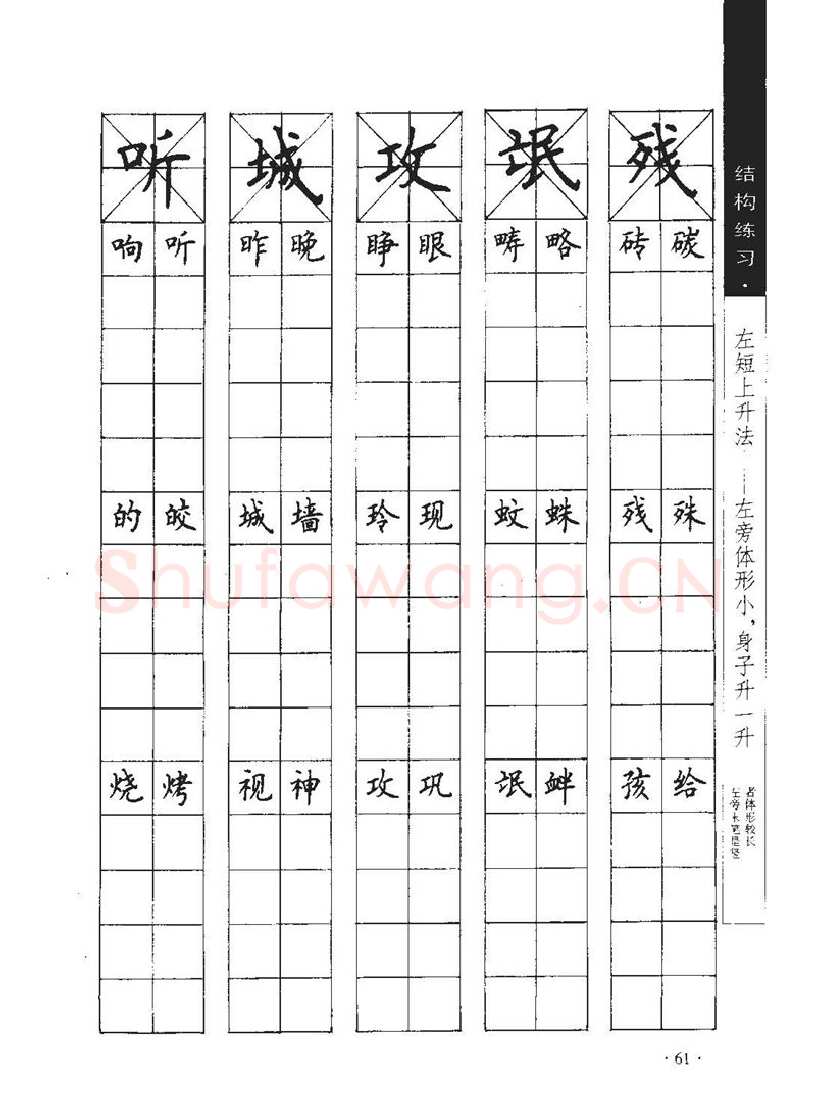 听 城 攻 氓 残
响 听 昨 晚 睁 眼 畴 略 砖 碳
的 皎 城 墙 玲 现 蚊 蛛 残 殊
烧 烤 视 神 攻 巩 氓 衅 孩 给
结构练习·
左短上升法——左旁体形小，身子升一升
左旁末笔是竖
者体形较长
Shufawang.CN
·61·